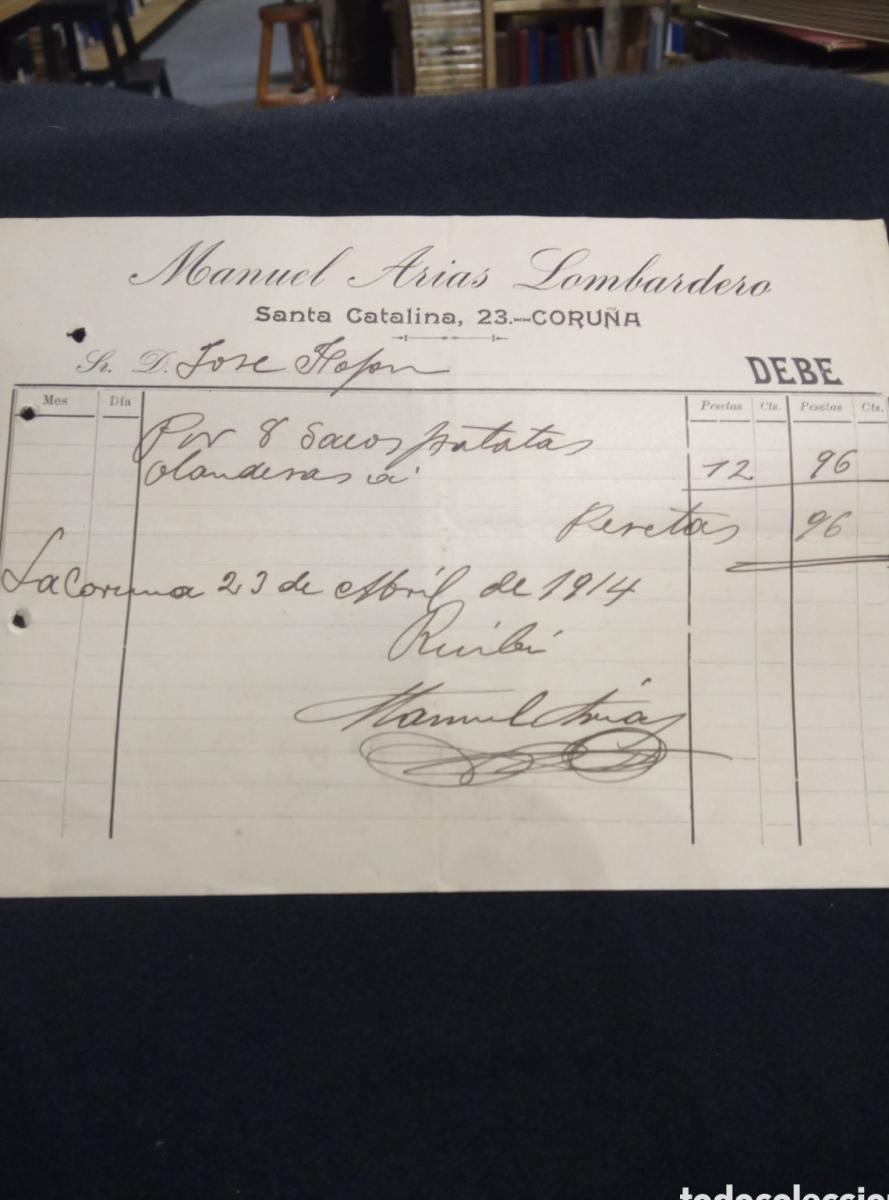 Manuel Arias Lombardero
Santa Catalina, 23.--CORUÑA
Sr. D. Jose
DEBE
Mes Día Pesetas Cts. Pesetas Cts.
Por 8 Sacos patatas
olanderas a 12 96
Pesetas 96
La Coruna 23 de Abril de 1914
Recibí
Manuel Arias
todocoleccion